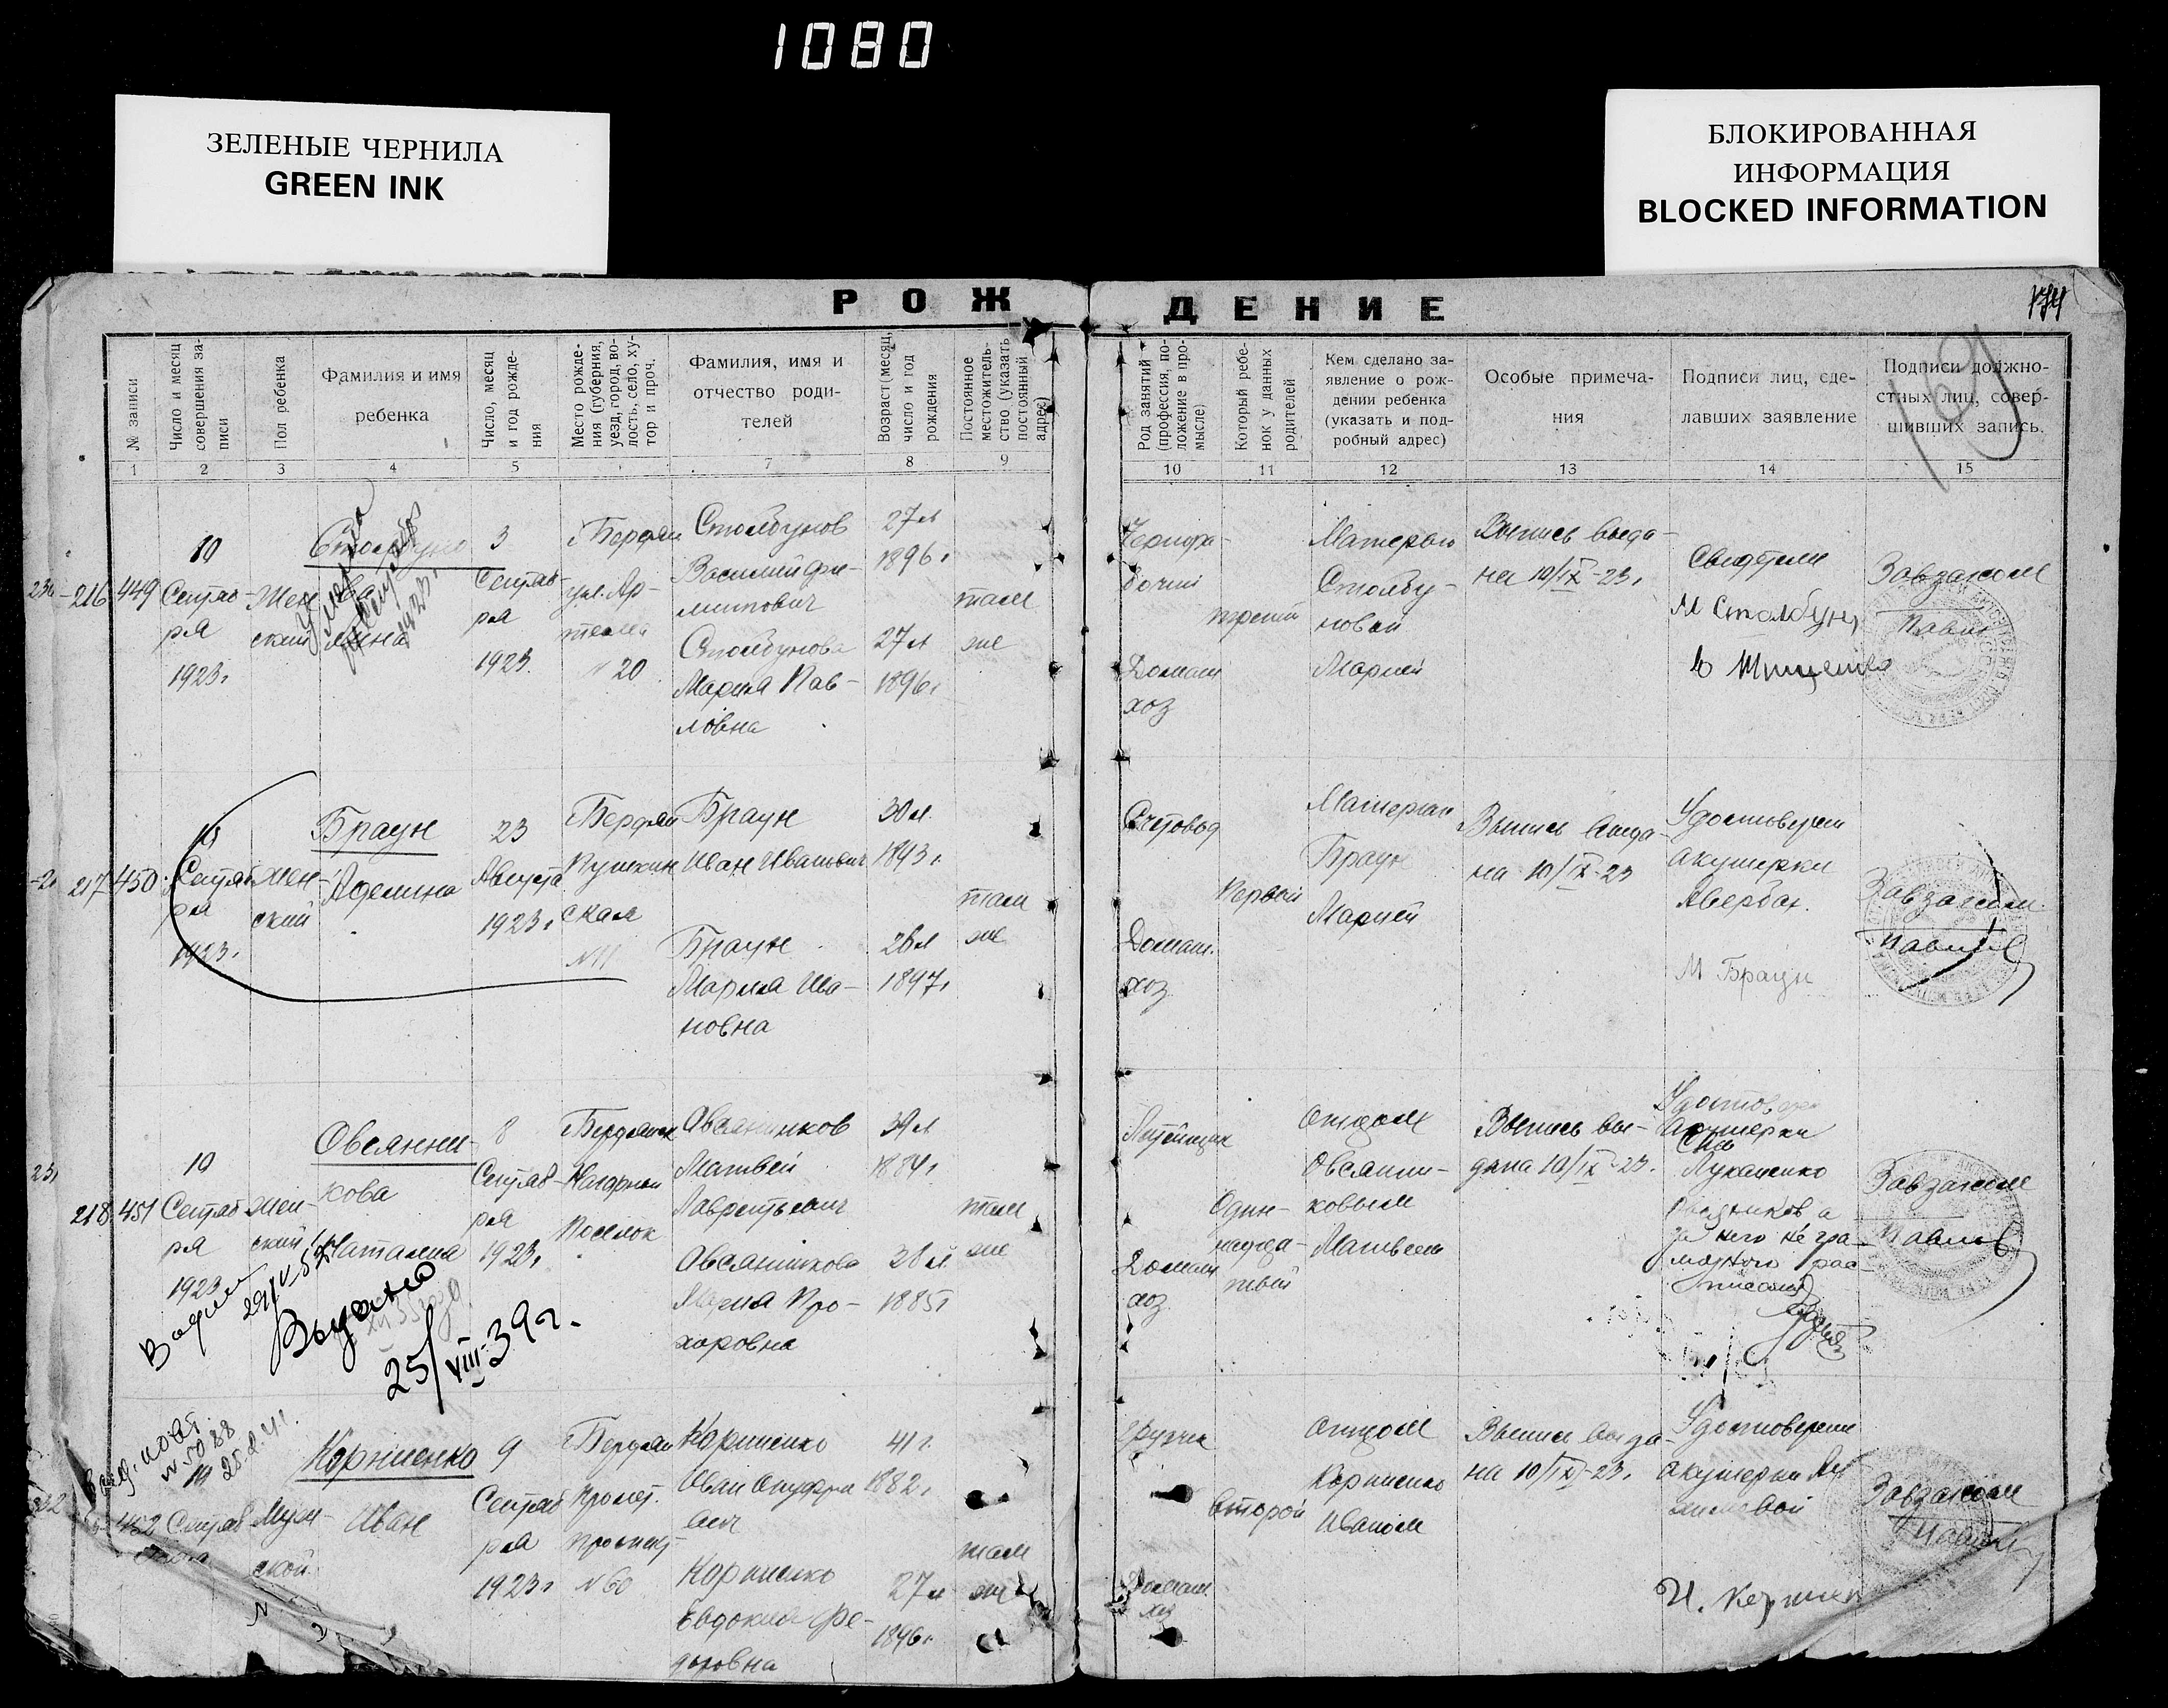 1080
ЗЕЛЕНЫЕ ЧЕРНИЛА
GREEN INK
БЛОКИРОВАННАЯ
ИНФОРМАЦИЯ
BLOCKED INFORMATION
РОЖДЕНИЕ
174
169
№ записи
Число и месяц
совершения за-
писи
Пол ребенка
Фамилия и имя
ребенка
Число, месяц
и год рожде-
ния
Место рожде-
ния (губерния,
уезд, город, во-
лость, село, ху-
тор и проч.
Фамилия, имя и
отчество роди-
телей
Возраст (месяц,
число и год
рождения
Постоянное
местожитель-
ство (указать
постоянный
адрес)
Род занятий
(профессия, по-
ложение в про-
мысле)
Который ребе-
нок у данных
родителей
Кем сделано за-
явление о рож-
дении ребенка
(указать и под-
робный адрес)
Особые примеча-
ния
Подписи лиц, сде-
лавших заявление
Подписи должно-
стных лиц, совер-
шивших запись.
1 2 3 4 5 7 8 9 10 11 12 13 14 15
216 449
10
Сентяб-
ря
1923г
Жен
ский
3
Сентяб-
ря
1923.
Бердян
ул. Ар-
N 20
Столбунов
Василий Фи-
липпович
Столбунова
Мария Пав-
ловна
27 л
1896г
27 л
1896г
там
же
Чернора-
бочий
Домаш
хоз
третий
Матерью
Столбу-
новой
Марией
Выпись выда-
на 10/IX-23г
Свидетели
М Столбун
Завзагсом
217 450
10
Сентяб
ря
1923г
Жен-
ский
Браун
Аделина
23
Августа
1923г
Бердян
Пушкин
ская
N11
Браун
Иван Иванович
Браун
Мария Ива-
новна
30 л
1893г
26 л
1897г
там
же
Счетовод
Домаш.
хоз
Первый
Матерью
Браун
Марией
Выпись выда-
на 10/IX-23
Удостоверен
акушерки
Авербах.
М Браун
Завзагсом
218 451
10
Сентяб
ря
1923
Жен-
ский
Овсянни-
кова
Наталия
8
Сентяб-
ря
1923г
Бердянск
Нагорный
Поселок
Овсянников
Матвей
Лаврентьевич
Овсянникова
Мария Про-
хоровна
39 л
1884г
38 л
1885г
там
же
Домаш
хоз.
Один-
надца-
тый
Отцом
Овсянни-
ковым
Матвеем
Выпись вы-
дана 10/IX-23.
Акушерки
Лукаценко
за него негра-
мотного рас-
Завзагсом
Выдано
25/VIII-39г.
452
10
Сентяб
Муж-
ской
Корниенко
Иван
9
Сентяб
ря
1923г
Бердян
Пролет.
проспект
N 60
Корниенко
Иван Онуфри
евич
Корниенко
Евдокия Фе-
доровна
41 г
1882г
27 л
1896г
там
же
Грузчик
Домаш.
хоз
второй
Отцом
Корниенко
Иваном
Выпись выда-
на 10/IX-23г
Удостоверен
акушерки
Завзагсом